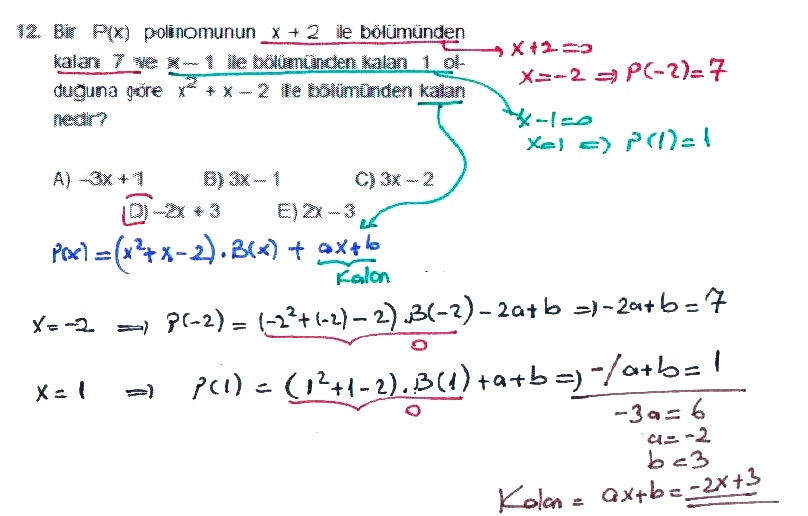 12. Bir P(x) polinomunun x + 2 ile bölümünden
kalan 7 ve x – 1 ile bölümünden kalan 1 ol-
duğuna göre x² + x – 2 ile bölümünden kalan
nedir?
x+2=0
x=-2 ⇒ P(-2)=7
x-1=0
x=1 ⇒ P(1)=1
A) –3x + 1 B) 3x – 1 C) 3x – 2
D) –2x + 3 E) 2x – 3
P(x)=(x²+x-2).B(x)+ax+b
Kalan
x=-2 ⇒ P(-2)=(-2²+(-2)-2).B(-2)-2a+b ⇒ -2a+b=7
0
x=1 ⇒ P(1)=(1²+1-2).B(1)+a+b ⇒ -/a+b=1
0
-3a=6
a=-2
b=3
Kalan = ax+b=-2x+3